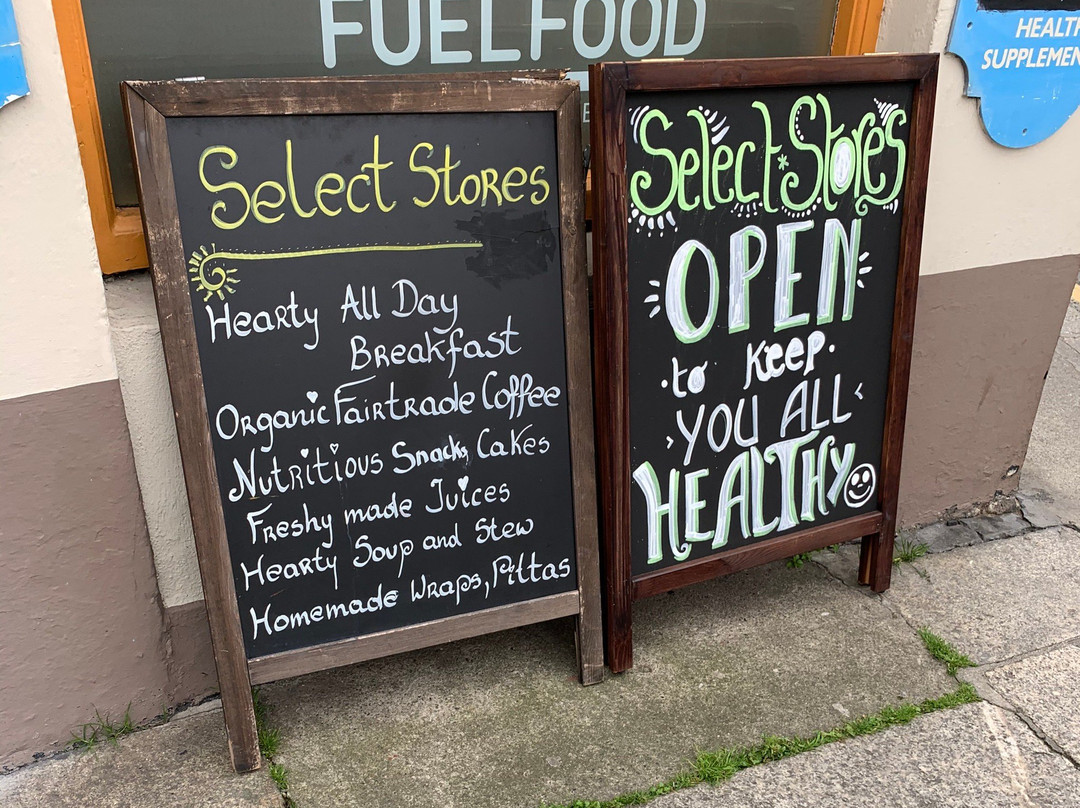 FUELFOOD
HEALTH
SUPPLEMEN
Select Stores
Hearty All Day
Breakfast
Organic Fairtrade Coffee
Nutritious Snacks, Cakes
Freshy made Juices
Hearty Soup and Stew
Homemade Wraps, Pittas
Select Stores
OPEN
to Keep
YOU ALL
HEALTHY